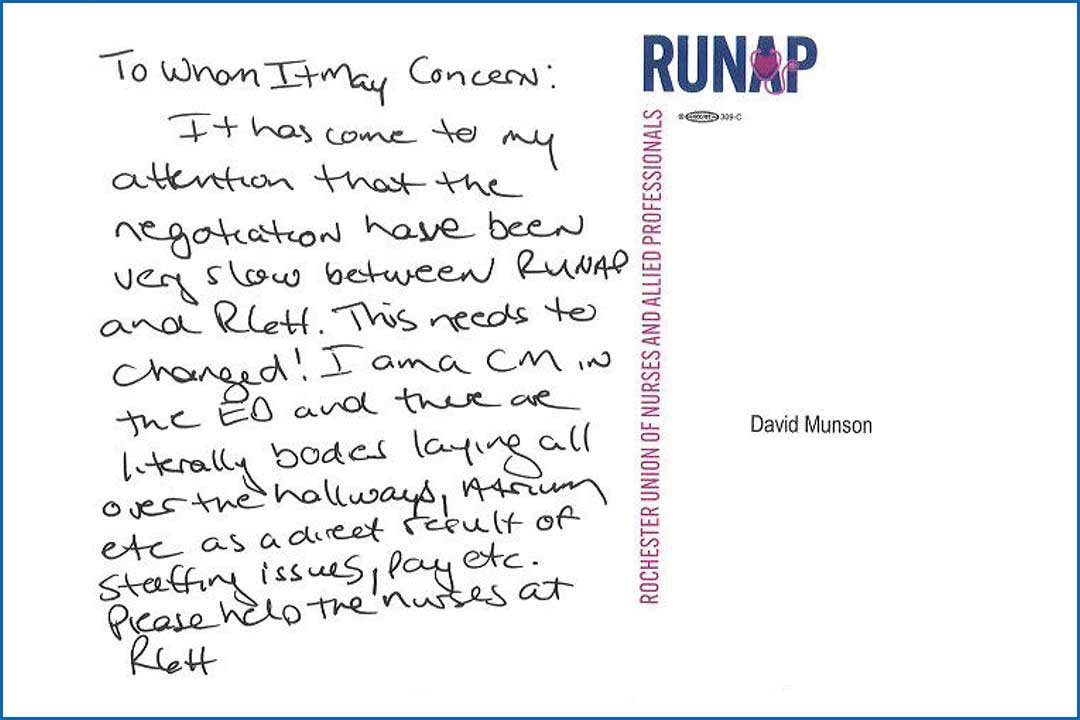 To Whom It May Concern:
It has come to my
attention that the
negotiation have been
very slow between RUNAP
and RGH. This needs to
changed! I am a CM in
the ED and there are
literally bodies laying all
over the hallways, Atrium
etc as a direct result of
staffing issues, pay etc.
Please help the nurses at
RGH
RUNAP
309-C
ROCHESTER UNION OF NURSES AND ALLIED PROFESSIONALS
David Munson